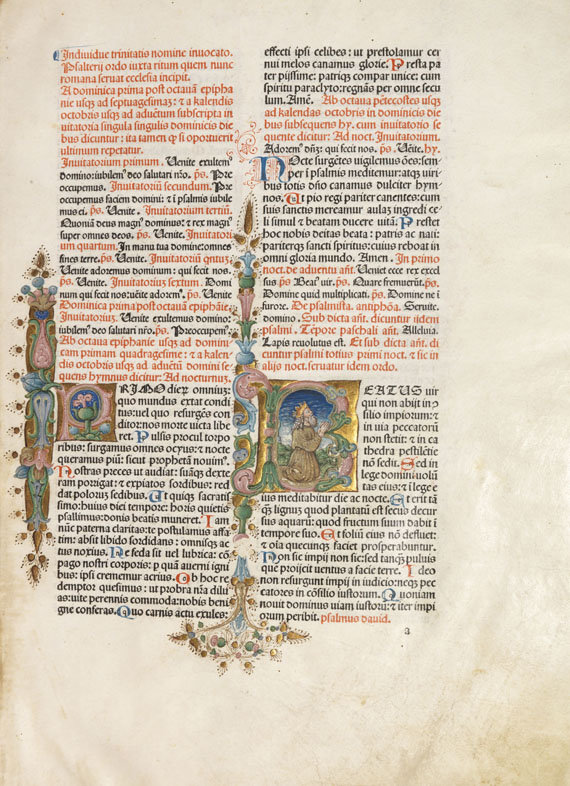 Indiuidue trinitatis nomine inuocato.
Psalterij ordo iuxta ritum quem nunc
romana seruat ecclesia incipit.
A dominica prima post octauā epipha
nie usqȝ ad septuagesimaȝ: ⁊ a kalendis
octobris usqȝ ad aduētum subscripta in
uitatoria singula singulis dominicis die
bus dicuntur: ita tamen qƺ si oportuerit
ultimum repetatur.
Inuitatorium primum. Uenite exultem⁹
domino:iubilem⁹ deo salutari nr̄o. ps. Pre
occupemus. Inuitatoriū secundum. Pre
occupemus faciem domini: ⁊ ī psalmis iubile
mus ei. ps. Uenite. Inuitatoriū tertiū.
Quoniā deus magn⁹ dominus: ⁊ rex magn⁹
super omnes deos. ps. Uenite. Inuitatori
um quartum. In manu tua domine:omnes
fines terre.ps. Uenite. Inuitatoriū qntuȝ.
Uenite adoremus dominum: qui fecit nos.
ps. Uenite. Inuitatoriuȝ sextum. Domi
num qui fecit nos:uēite adorem⁹. ps. Uenite.
Dominica prima post octauā epiphāie.
Inuitatoriuȝ. Uenite exultemus domino:
iubilem⁹ deo salutari nr̄o. ps. Preoccupem⁹.
Ab octaua epiphanie usqȝ ad domini
cam primam quadragesime: ⁊ a kalen
dis octobris usqȝ ad aduētū domini se
quens hymnus dicitur: Ad nocturnuȝ.
PRIMO dierȝ omniuȝ:
quo mundus extat condi
tus:uel quo resurgēs con
ditor:nos morte uicta libe
ret. Pulsis procul torpo
ribus: surgamus omnes ocyus: ⁊ nocte
queramus piū: sicut prophetā nouim⁹.
Nostras preces ut audiat: suāqȝ dexte
ram porrigat: ⁊ expiatos sordibus: red
dat poloruȝ sedibus. Ut quiqȝ sacratis
simo:huius diei tempore: horis quietis
psallimus:donis beatis muneret. Iam
nūc paterna claritas:te postulamus affa
tim: absit libido sordidans: omnisqȝ ac
tus noxius. Ne feda sit uel lubrica: cō
pago nostri corporis: p quā auerni igni
bus: ipsi crememur acrius. Ob hoc re
demptor quesimus: ut probra nr̄a dilu
as:uite perennis commoda:nobis beni
gne conferas. Quo carnis actu exules:
effecti ipsi celibes: ut prestolamur cer
nui melos canamus glorie. Presta pa
ter pijssime: patriqȝ compar unice: cum
spiritu paraclyto:regnās per omne secu
lum. Amē. Ab octaua pētecostes usqȝ
ad kalendas octobris in dominicis die
bus subsequens hy. cum inuitatorio se
quente dicitur: Ad noct. Inuitatorium.
Adorem⁹ dn̄ȝ: qui fecit nos. ps. Uēite.hy.
Nocte surgētes uigilemus ōes:sem
per ī psalmis meditemur: atqȝ uiri
bus totis dn̄o canamus dulciter hym
nos. Ut pio regi pariter canentes: cum
suis sanctis mereamur aulaȝ ingredi ce
li simul ⁊ beatam ducere uitā. Prestet
hoc nobis deitas beata: patris ac nati:
pariterqȝ sancti spiritus: cuius reboat in
omni gloria mundo. Amen. In primo
noct. de aduentu añt. Ueniet ecce rex excel
sus ps Beat⁹ uir. ps. Quare fremuerūt.ps.
Domine quid multiplicati. ps. Domine ne ī
furore. De psalmista. antiphōa. Seruite.
domino. Sub dicta añt. dicuntur iidem
psalmi. Tēpore paschali añt. Alleluia.
Lapis reuolutus est. Et sub dicta añt. di
cuntur psalmi totius primi noct. ⁊ sic in
alijs noct. seruatur idem ordo.
BEATUS uir
qui non abijt in cō
silio impiorum: ⁊
in uia peccatorū
non stetit: ⁊ in ca
thedra pestilētie
nō sedit. Sed in
lege domini uolū
tas eius: ⁊ ī lege e
ius meditabitur die ac nocte. Et erit tā
qȝ lignuȝ quod plantatū est secus decur
sus aquarū: quod fructum suum dabit ī
tempore suo. Et foliū eius nō defluet:
⁊ oīa quecunqȝ faciet prosperabuntur.
Non sic impij non sic:sed tanqȝ puluis
que proijcit uentus a facie terre. Ideo
non resurgunt impij in iudicio:neqȝ pec
catores in cōsilio iustorum. Quoniam
nouit dominus uiam iustorū:⁊ iter impi
orum peribit. psalmus dauid.
a